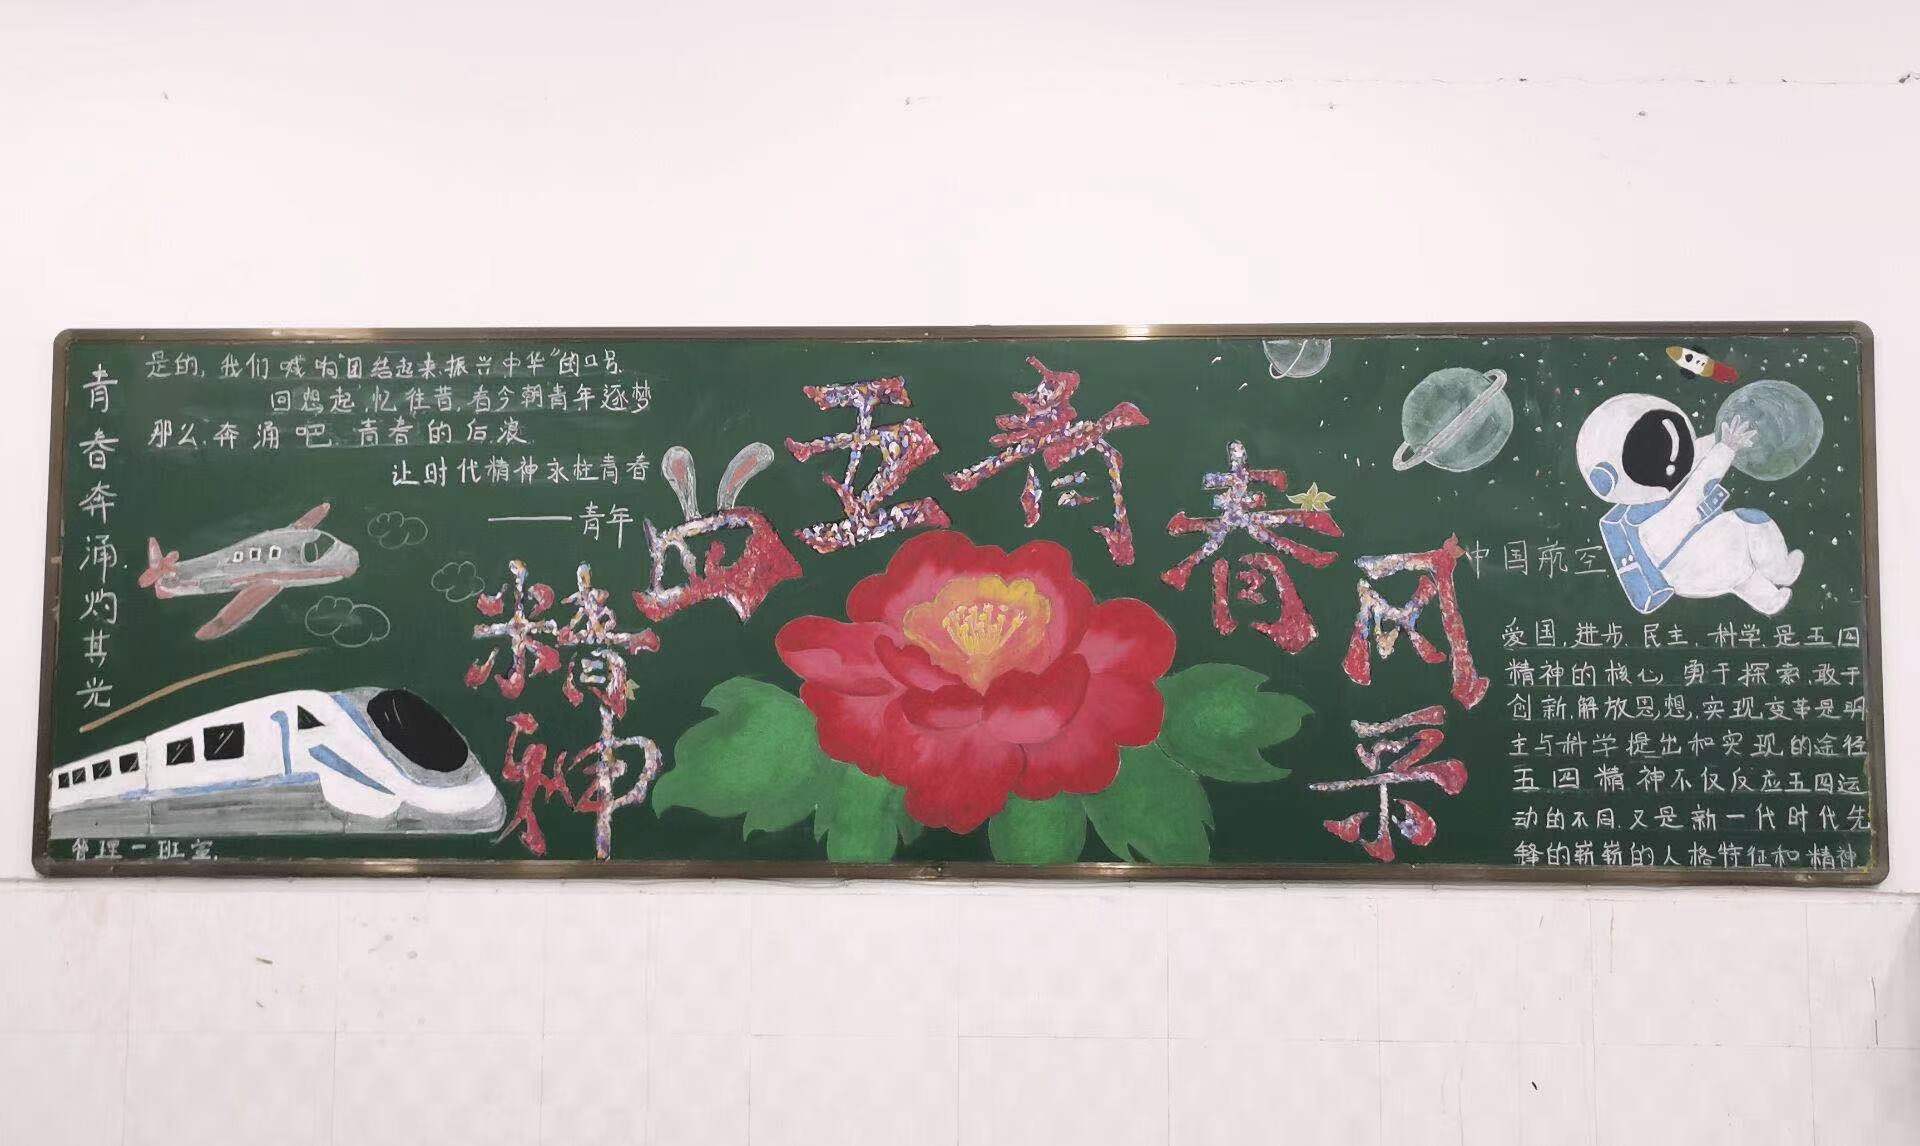 青春奔涌灼其光
是的,我们喊响"团结起来,振兴中华"的口号
回想起,忆往昔,看今朝青年逐梦
那么,奔涌吧,青春的后浪
让时代精神永柱青春
——青年
五四青春风采
精神
中国航空
爱国,进步,民主,科学,是五四
精神的核心,勇于探索,敢于
创新,解放思想,实现变革是明
主与科学提出和实现的途径
五四精神不仅反应五四运
动的不同,又是新一代时代先
锋的崭崭的人格特征和精神
管理一班宣